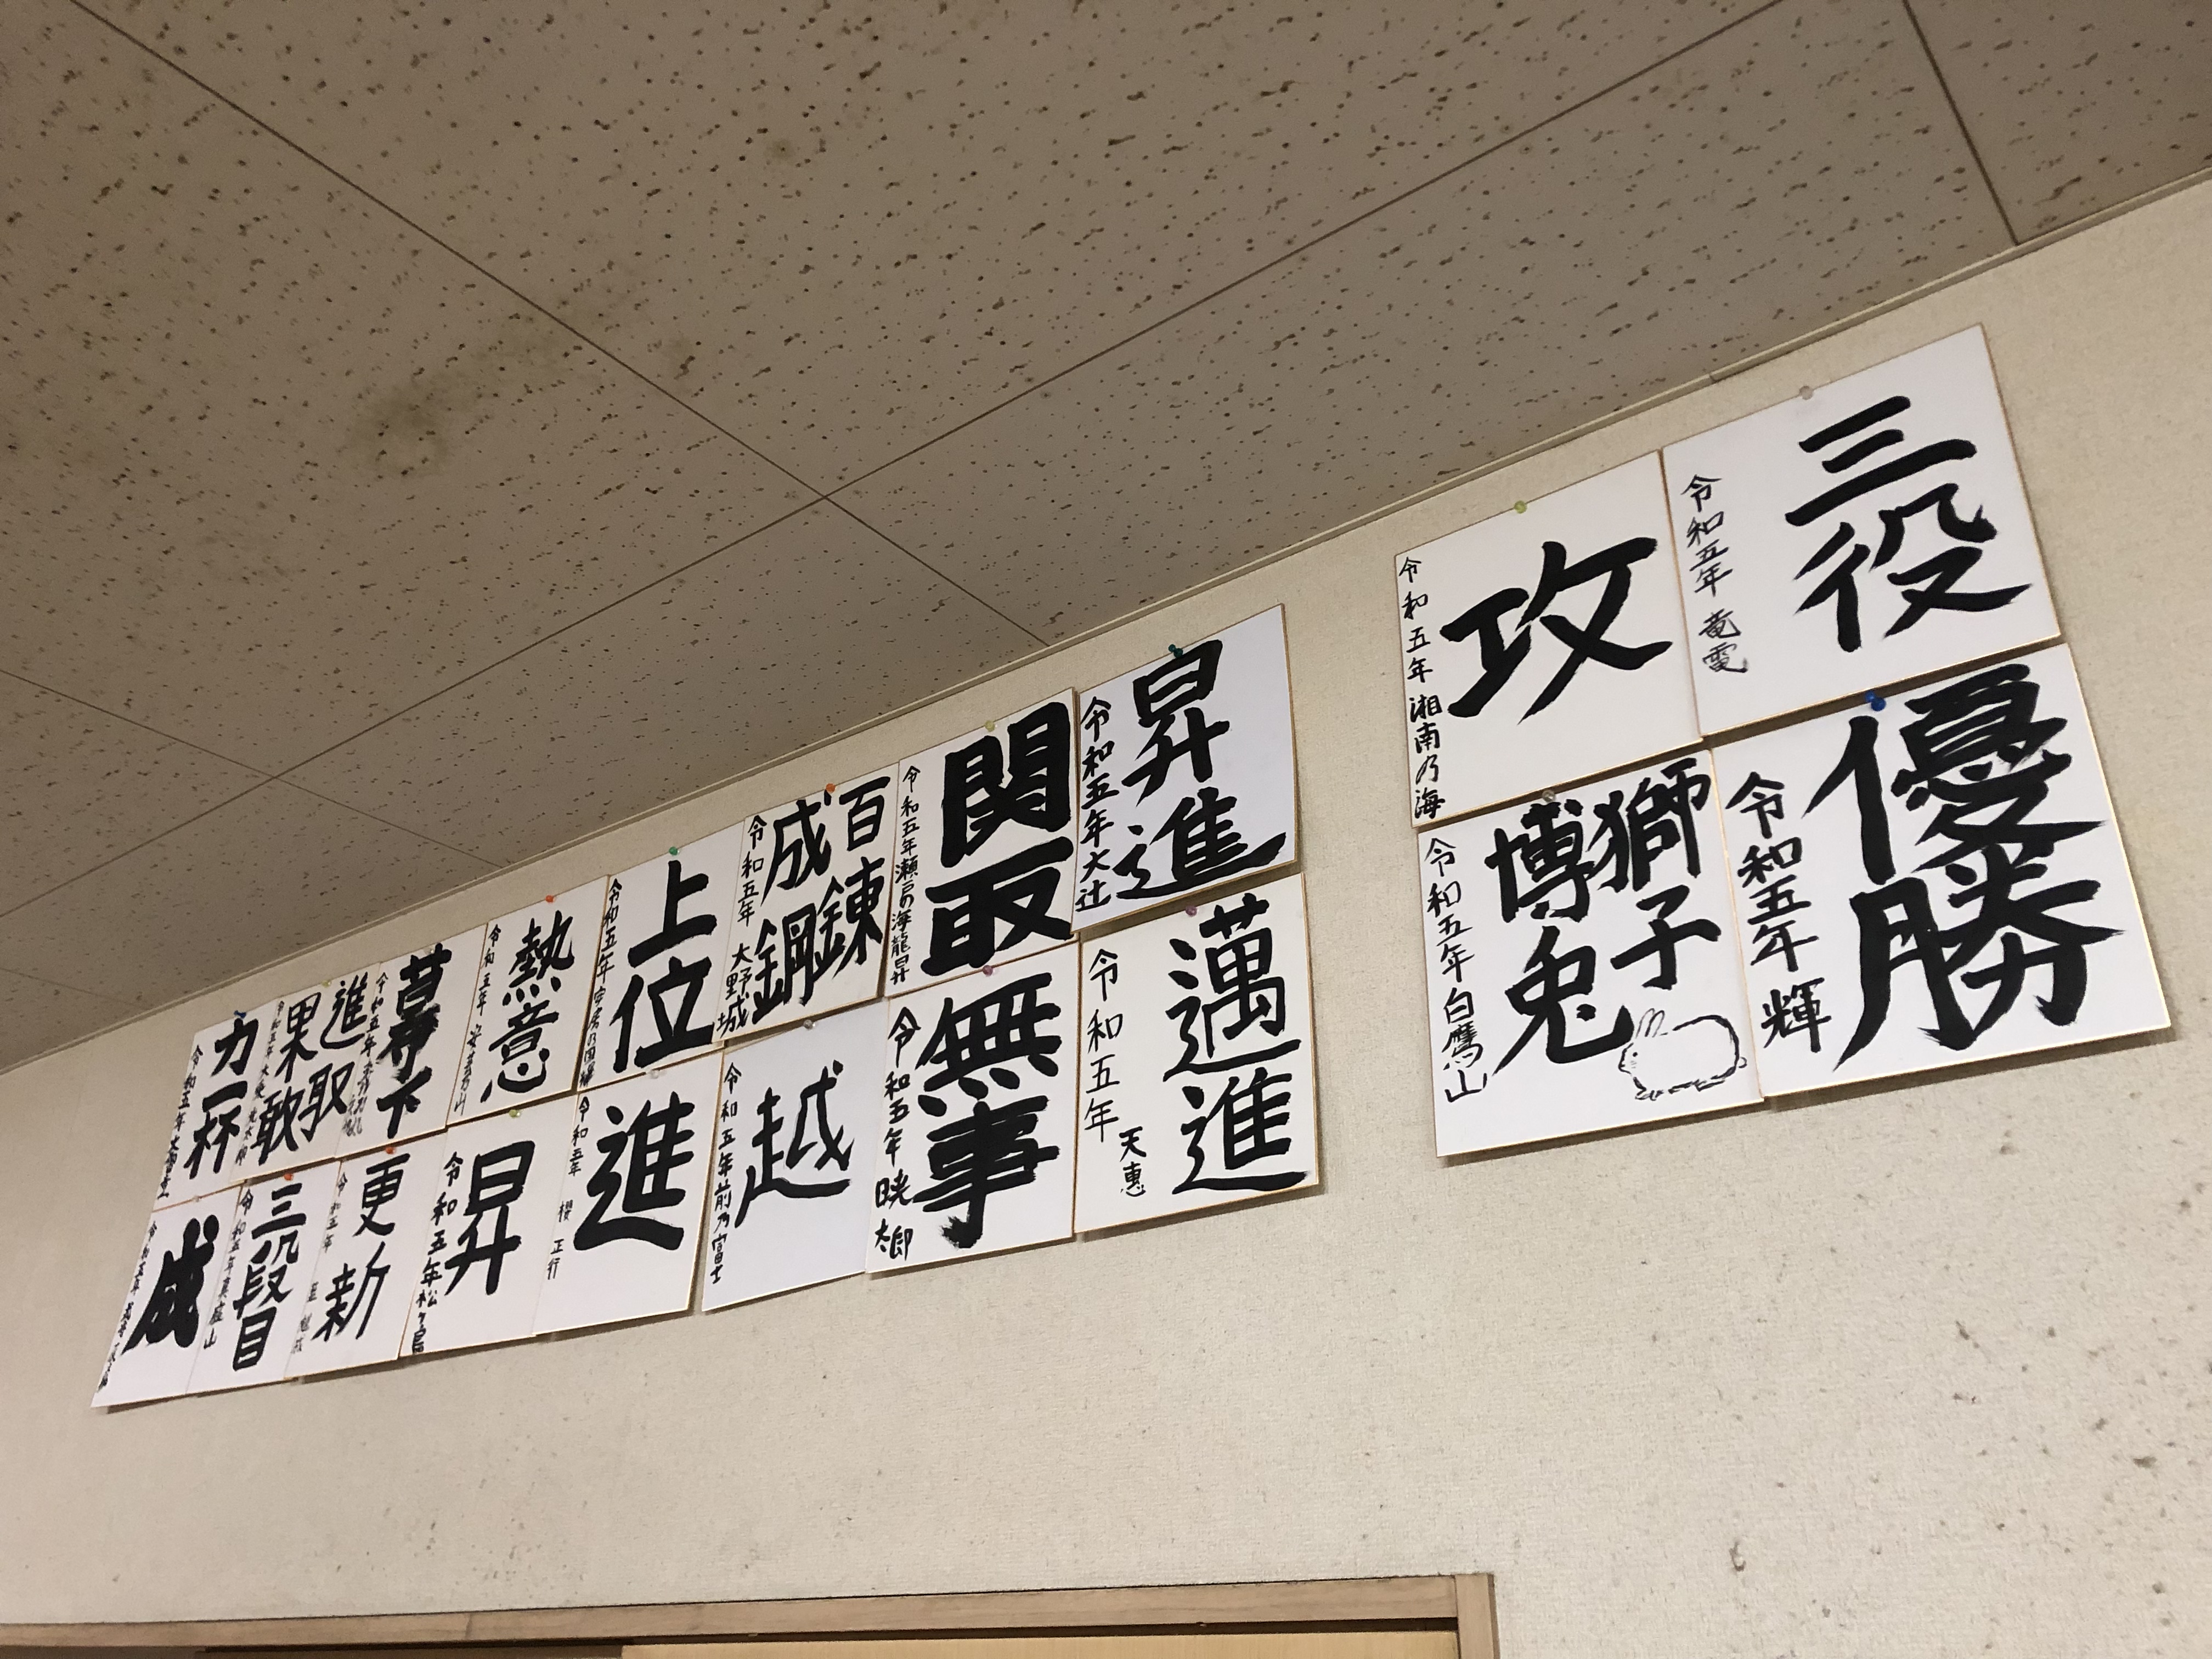 三役
令和五年 竜電
攻
令和五年 湘南乃海
優勝
令和五年 輝
獅子
博兎
令和五年 白鷹山
昇進
令和五年 大辻
関取
令和五年 瀬戸の海龍昇
百錬
成鋼
令和五年 大野城
上位
令和五年 安房乃国
熱意
令和五年
幕下
令和五年
進取
果敢
令和五年
力一杯
令和五年
邁進
令和五年 天惠
無事
令和五年 暁太郎
越
令和五年 前乃富士
進
令和五年 櫻 正行
昇
令和五年 松ヶ島
更新
令和五年
三段目
令和五年
成
令和五年